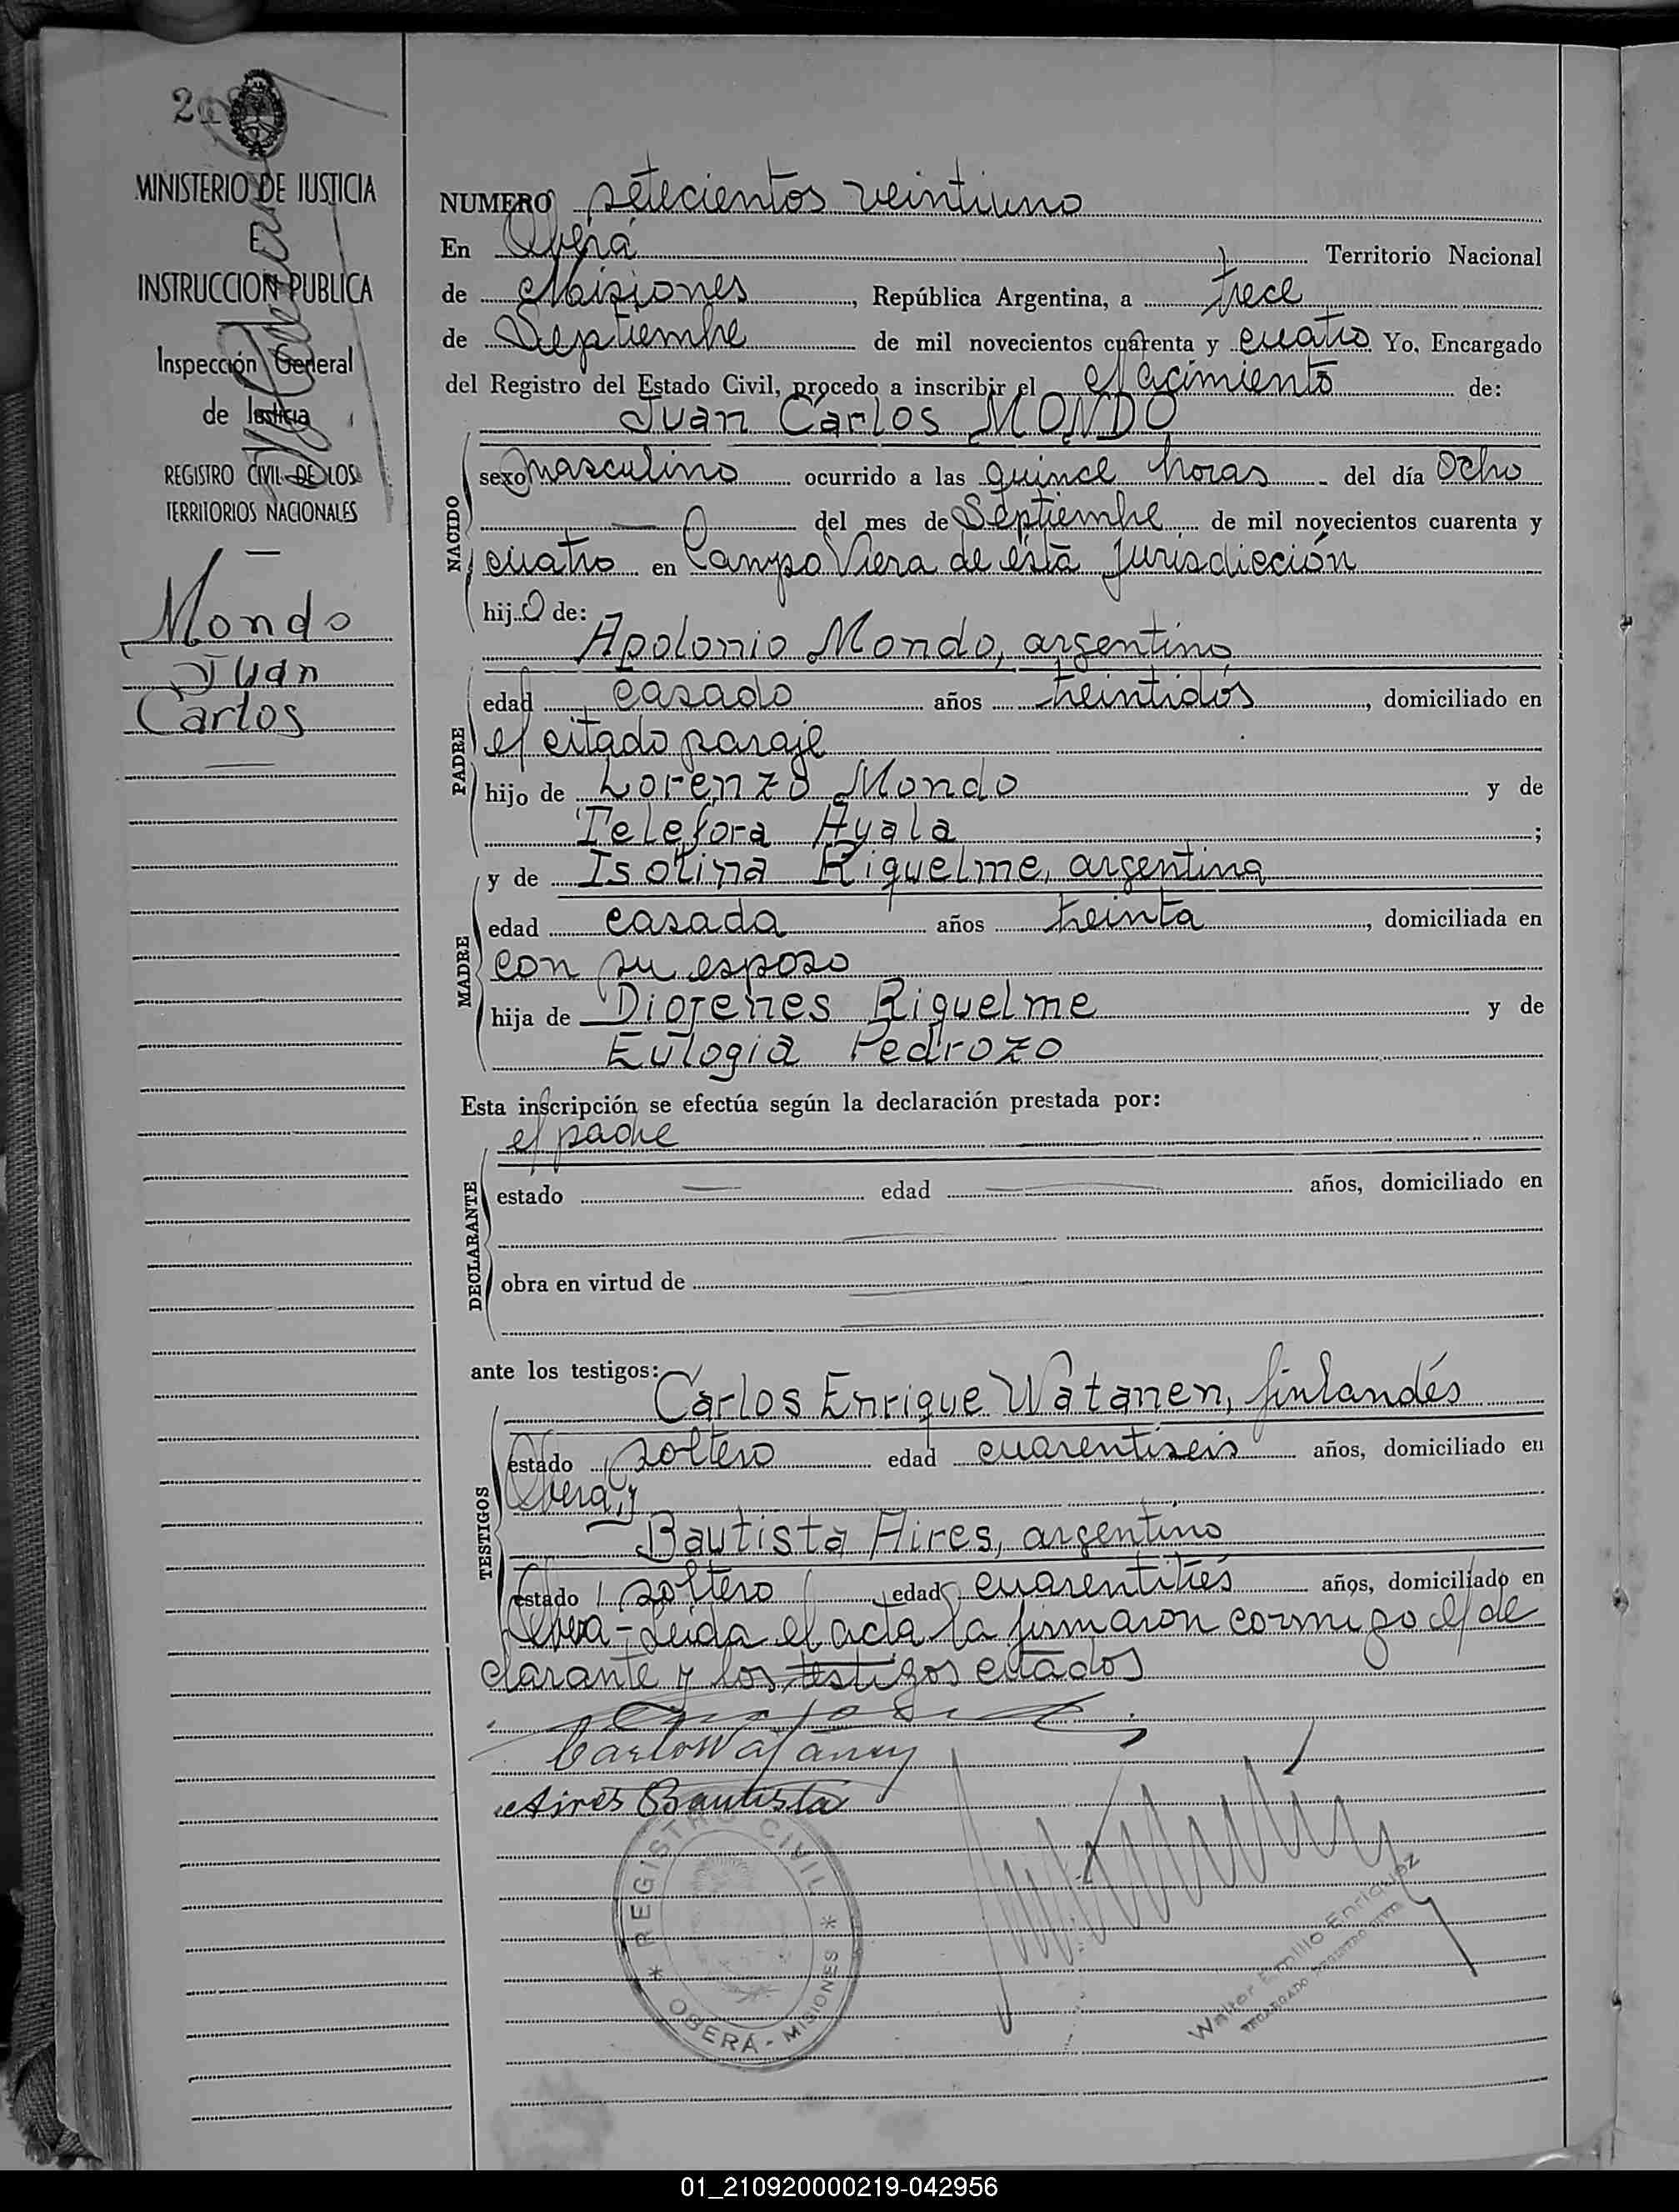 MINISTERIO DE JUSTICIA
INSTRUCCION PUBLICA
Inspección General
de Justicia
REGISTRO CIVIL DE LOS
TERRITORIOS NACIONALES
Mondo
Juan
Carlos
NUMERO setecientos veintiuno
En Oberá Territorio Nacional
de Misiones, República Argentina, a trece
de Septiembre de mil novecientos cuarenta y cuatro Yo, Encargado
del Registro del Estado Civil, procedo a inscribir el Nacimiento de:
Juan Carlos MONDO
NACIDO
sexo masculino ocurrido a las quince horas del día Ocho
del mes de Septiembre de mil novecientos cuarenta y
cuatro en Campo Viera de esta jurisdicción
hijo de:
Apolonio Mondo, argentino
PADRE
edad casado años treintidós, domiciliado en
el citado paraje
hijo de Lorenzo Mondo y de
Telefora Ayala;
y de Isolina Riquelme, argentina
MADRE
edad casada años treinta, domiciliada en
con su esposo
hija de Diogenes Riquelme y de
Eulogia Pedrozo
Esta inscripción se efectúa según la declaración prestada por:
el padre
DECLARANTE
estado edad años, domiciliado en
obra en virtud de
ante los testigos:
Carlos Enrique Watanen, finlandés
TESTIGOS
estado soltero edad cuarentiseis años, domiciliado en
Oberá, y
Bautista Aires, argentino
estado soltero edad cuarentitrés años, domiciliado en
Oberá - Leida el acta la firmaron conmigo el de
clarante y los testigos citados
Aires Bautista
REGISTRO CIVIL
OBERÁ - MISIONES
Walter Emilio Enriquez
ENCARGADO REGISTRO CIVIL
01_210920000219-042956